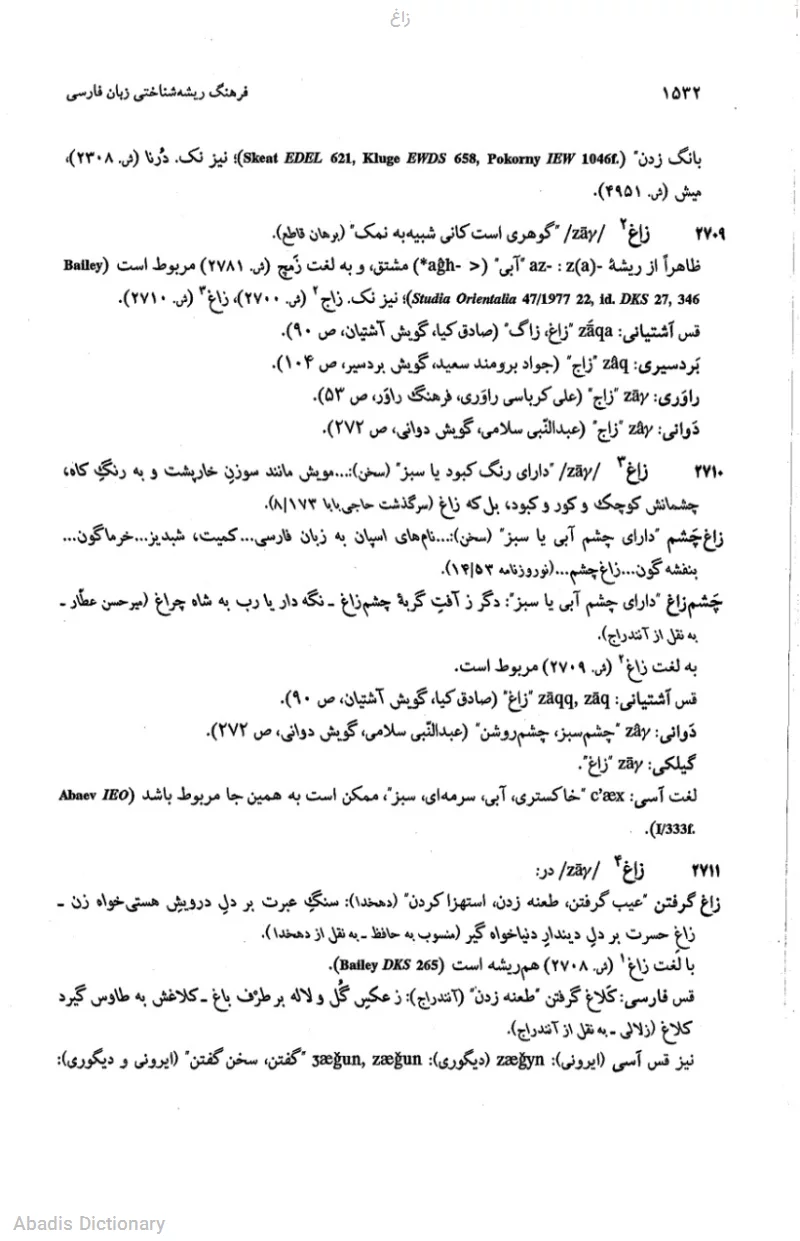 زاغ
۱۵۳۲ فرهنگ ریشه‌شناختی زبان فارسی
بانگ زدن" (Skeat EDEL 621, Kluge EWDS 658, Pokorny IEW 1046f.)؛ نیز نک. دُرنا (ش. ۲۳۰۸)،
میش (ش. ۴۹۵۱).
۲۷۰۹ زاغ۲ /zāγ/ "گوهری است کانی شبیه‌به نمک" (برهان قاطع).
ظاهراً از ریشهٔ az- : z(a)- "آبی" (< *aĝh-) مشتق، و به لغت زَمج (ش. ۲۷۸۱) مربوط است (Bailey
Studia Orientalia 47/1977 22, id. DKS 27, 346)؛ نیز نک. زاج۲ (ش. ۲۷۰۰)، زاغ۳ (ش. ۲۷۱۰).
قس آشتیانی: zāqa "زاغ، زاگ" (صادق کیا، گویش آشتیان، ص ۹۰).
بَردسیری: zâq "زاج" (جواد برومند سعید، گویش بردسیر، ص ۱۰۴).
راوَری: zāγ "زاج" (علی کرباسی راوَری، فرهنگ راوَر، ص ۵۳).
دَوانی: zâγ "زاج" (عبدالنّبی سلامی، گویش دوانی، ص ۲۷۲).
۲۷۱۰ زاغ۳ /zāγ/ "دارای رنگ کبود یا سبز" (سخن):...مویش مانند سوزنِ خارپشت و به رنگِ کاه،
چشمانش کوچک و کور و کبود، بل که زاغ (سرگذشت حاجی‌بابا ۸/۱۷۳).
زاغ‌چَشم "دارای چشم آبی یا سبز" (سخن):...نام‌های اسپان به زبان فارسی...کمیت، شبدیز...خرماگون...
بنفشه گون...زاغ‌چشم...(نوروزنامه ۱۴/۵۳).
چَشم‌زاغ "دارای چشم آبی یا سبز": دگر ز آفتِ گربهٔ چشم‌زاغ ـ نگه دار یا رب به شاه چراغ (میرحسن عطّار ـ
به نقل از آنندراج).
به لغت زاغ۲ (ش. ۲۷۰۹) مربوط است.
قس آشتیانی: zāqq, zāq "زاغ" (صادق کیا، گویش آشتیان، ص ۹۰).
دَوانی: zâγ "چشم‌سبز، چشم‌روشن" (عبدالنّبی سلامی، گویش دوانی، ص ۲۷۲).
گیلکی: zāγ "زاغ".
لغت آسی: c’æx "خاکستری، آبی، سرمه‌ای، سبز"، ممکن است به همین جا مربوط باشد (Abaev IEO
I/333f.).
۲۷۱۱ زاغ۴ /zāγ/ در:
زاغ گرفتن "عیب گرفتن، طعنه زدن، استهزا کردن" (دهخدا): سنگِ عبرت بر دلِ درویشِ هستی‌خواه زن ـ
زاغِ حسرت بر دلِ دیندارِ دنیاخواه گیر (منسوب به حافظ ـ به نقل از دهخدا).
با لغت زاغ۱ (ش. ۲۷۰۸) هم‌ریشه است (Bailey DKS 265).
قس فارسی: کَلاغ گرفتن "طعنه زدن" (آنندراج): ز عکسِ گُل و لاله بر طَرْفِ باغ ـ کلاغش به طاوس گیرد
کلاغ (زلالی ـ به نقل از آنندراج).
نیز قس آسی (ایرونی): zæǧyn (دیگوری): ʒæǧun, zæǧun "گفتن، سخن گفتن" (ایرونی و دیگوری):
Abadis Dictionary